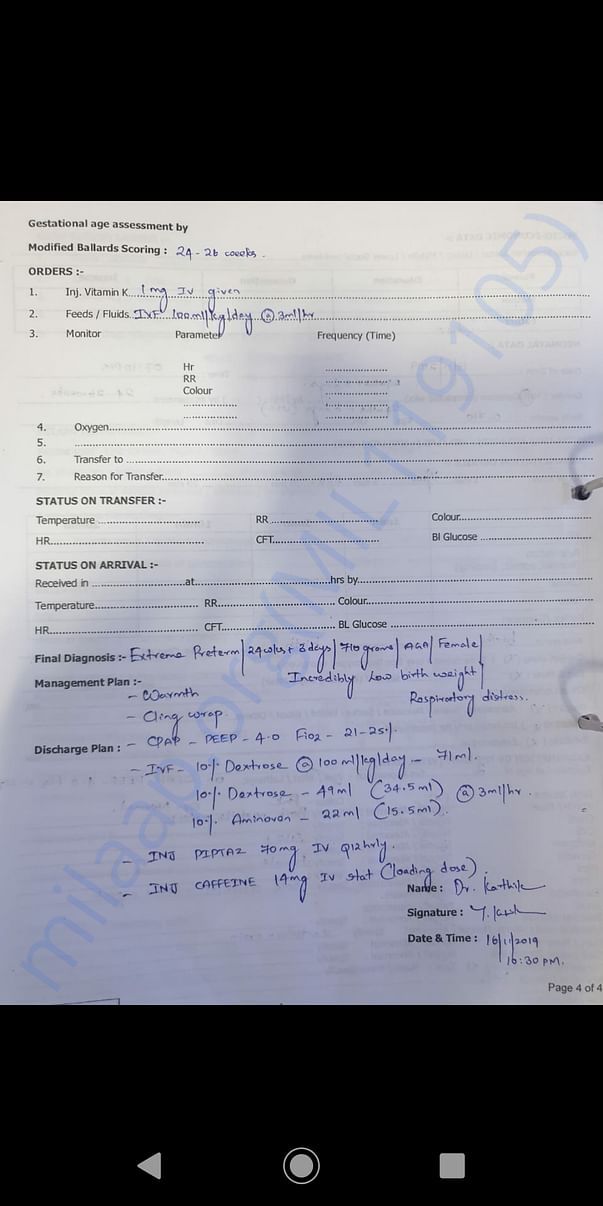 Gestational age assessment by
Modified Ballards Scoring : 24 - 26 weeks.
ORDERS :-
1. Inj. Vitamin K 1 mg IV given
2. Feeds / Fluids. IVF 100ml/kg/day @ 3ml/hr
3. Monitor Parameter Frequency (Time)
Hr
RR
Colour
4. Oxygen
5.
6. Transfer to
7. Reason for Transfer
STATUS ON TRANSFER :-
Temperature RR Colour
HR CFT Bl Glucose
STATUS ON ARRIVAL :-
Received in at hrs by
Temperature RR Colour
HR CFT BL Glucose
Final Diagnosis :- Extreme Preterm / 24 wks + 3 days / 710 grams / AGA / Female /
Incredibly Low birth weight /
Respiratory distress.
Management Plan :-
- Warmth
- Cling wrap.
Discharge Plan : - CPAP - PEEP - 4.0 Fio2 - 21-25%.
- IVF - 10% Dextrose @ 100 ml/kg/day - 71ml.
10% Dextrose - 49ml (34.5ml) @ 3ml/hr.
10% Aminoven - 22ml (15.5ml).
- INJ PIPTAZ 70mg IV Q12hrly.
- INJ CAFFEINE 14mg IV stat (loading dose).
Name : Dr. Karthik
Signature :
Date & Time : 16/11/2019
16:30 PM.
Page 4 of 4
milaap.org(MIL119105)